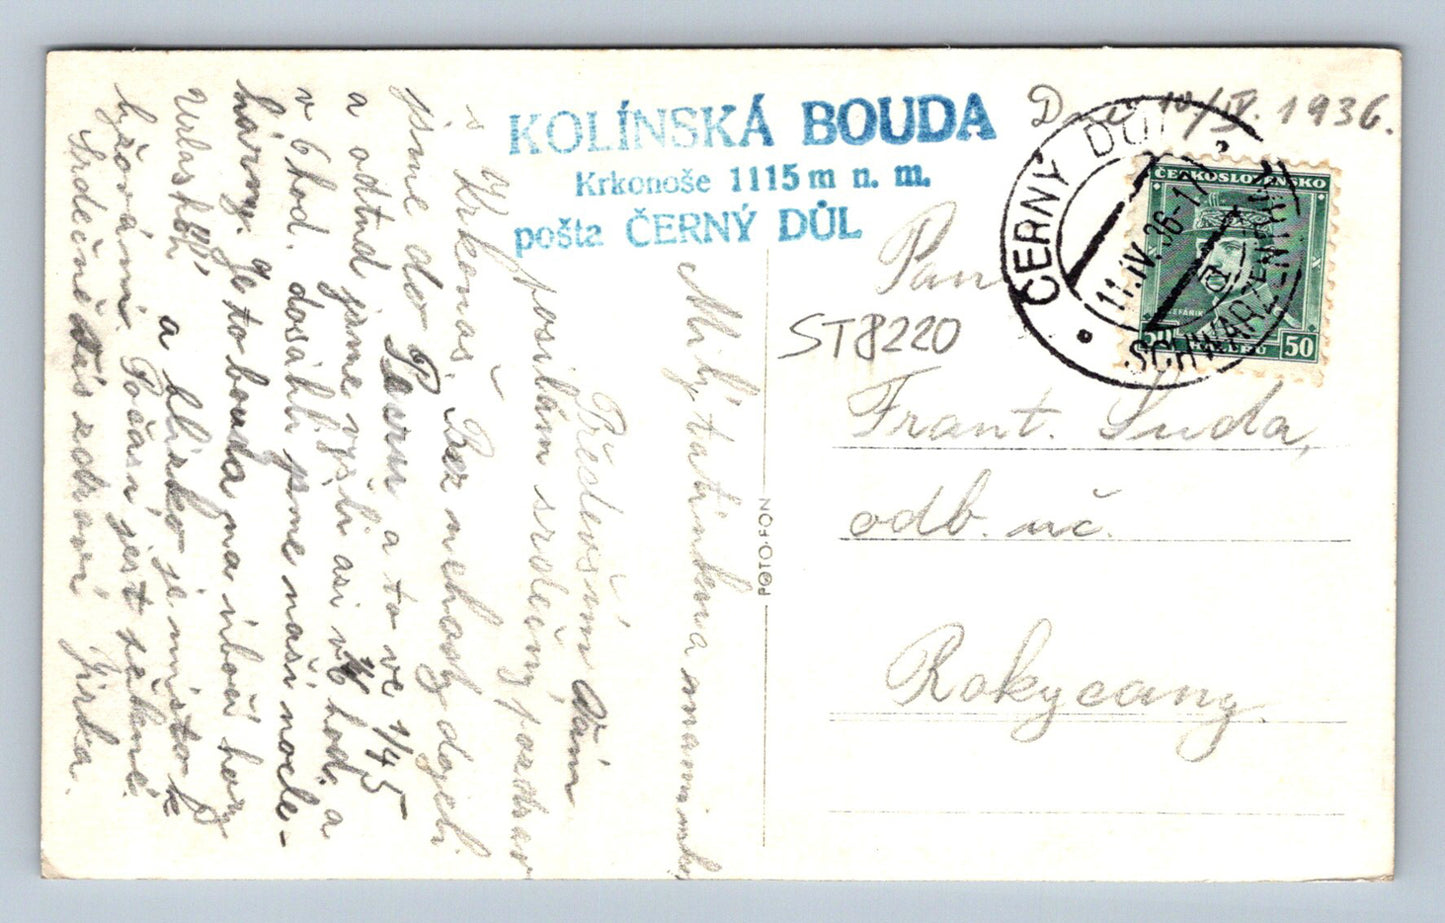 KOLÍNSKÁ BOUDA
Krkonoše 1115 m n. m.
pošta ČERNÝ DŮL
D 10/IV. 1936.
ČERNÝ DŮL
11.IV.36-17
SCHWARZENTHAL
a
ČESKOSLOVENSKO
ŠTEFÁNIK
50 HALÉŘŮ 50
Pan
ST8220
Frant. Suda,
odb. uč.
Rokycany
FOTO-FON
Milý tatínku a maminko
Především Vám
posílám srdečný pozdrav
z Krkonoš. Bez nehody dojeli
jsme do Pecru a to ve 1/45
a odtud jsme vyšli asi v hod. a
v 6 hod. dosáhli jsme naši nocle-
hárny. Je to bouda na úbočí hory
a blízko je místo k
lyžování. Počasí jest pěkné.
Srdečně Vás zdraví Jirka.